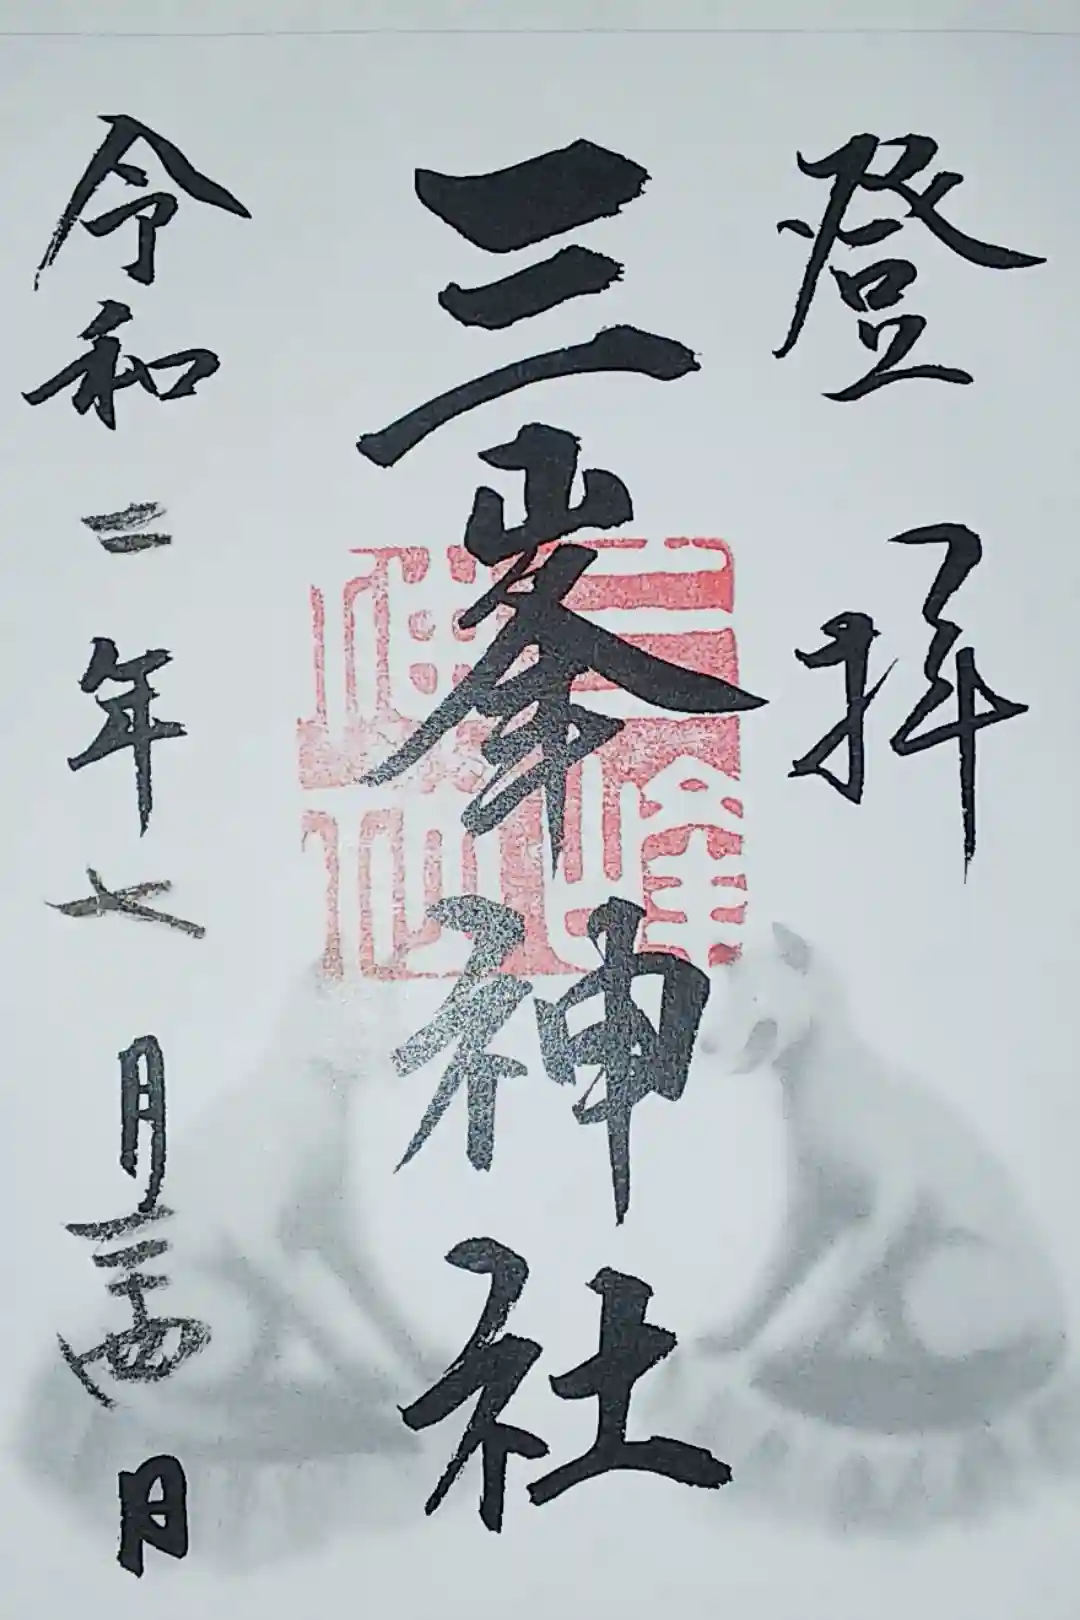 登拝
三峯神社
令和二年七月二十四日